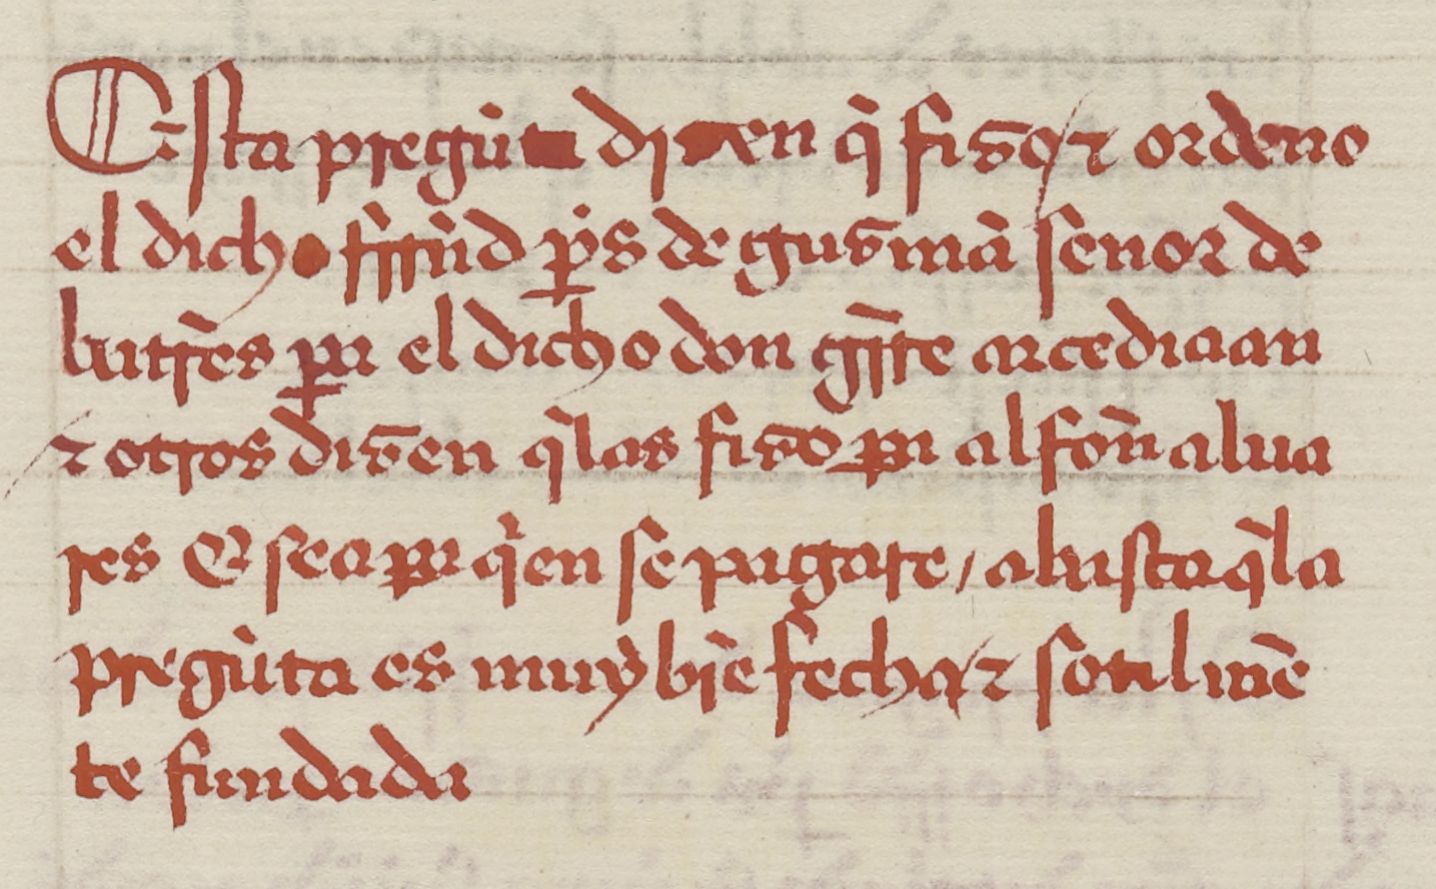 Esta pregũta dizen q̃ fizo ⁊ ordeno
el dicho ferrñd p̃s de guzmã señor de
batres por el dicho don grñte arcediaan
⁊ otros dizen q̃las fizo por alfoñ alua
res E sea por q̃en se pagare / abasta q̃la
pregũta es muy biẽ fecha ⁊ sotilmẽ
te fundada